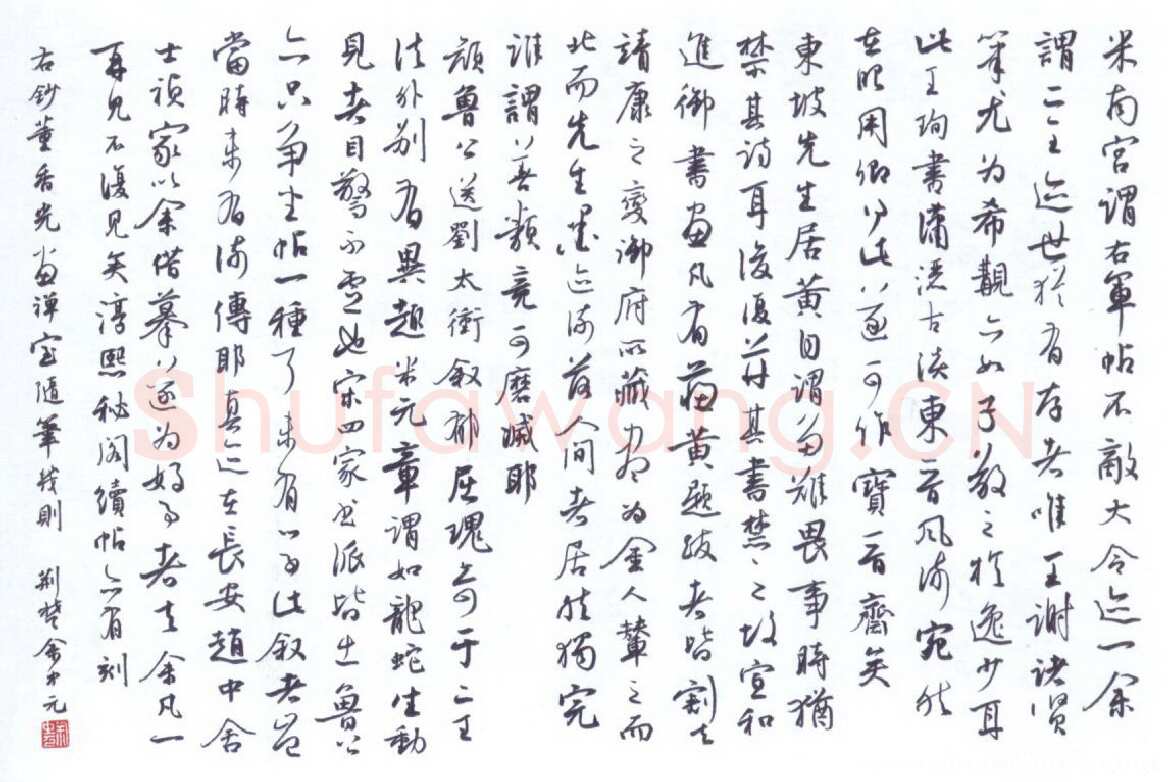 米南宮謂右軍帖不敵大令迹一余
謂二王迹世猶有存者唯王謝諸賢
筆尤為希覯亦如子敬之於逸少耳
此王珣書瀟灑古淡東晉風流宛然
在眼用卿得此遂可作寶晉齋矣
東坡先生居黃自謂多難畏事時猶
禁其詩耳後復并其書禁之故宣和
進御書畫凡有蘇黃題跋者皆割去
靖康之變御府所藏盡為金人輦之而
北而先生墨迹流落人間者居然獨完
誰謂善類竟可磨滅耶
顏魯公送劉太衝敘郁屈瑰奇于二王
法外別有異趣米元章謂如龍蛇生動
見者目驚不虛也宋四家書派皆出魯公
亦只爭坐帖一種了未有學此敘者豈
當時未有流傳耶真迹在長安趙中舍
士禎家以余借摹遂為好事者去余凡一
再見不復見矣淳熙秘閣續帖亦有刻
右鈔董香光畫禪室隨筆幾則 荊楚余中元
Shufawang.CN